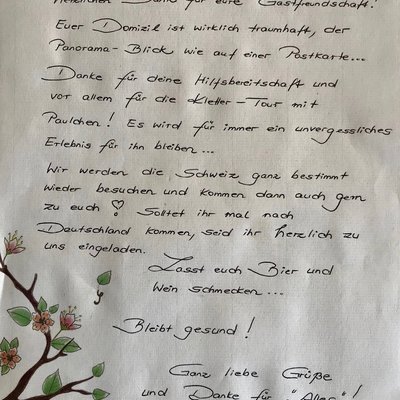 Herzlichen Dank für eure Gastfreundschaft!
Euer Domizil ist wirklich traumhaft, der
Panorama-Blick wie auf einer Postkarte...
Danke für deine Hilfsbereitschaft und
vor allem für die Kletter-Tour mit
Paulchen! Es wird für immer ein unvergessliches
Erlebnis für ihn bleiben...
Wir werden die Schweiz ganz bestimmt
wieder besuchen und kommen dann auch gern
zu euch! Solltet ihr mal nach
Deutschland kommen, seid ihr herzlich zu
uns eingeladen.
Lasst euch Bier und
Wein schmecken...
Bleibt gesund!
Ganz liebe Grüße
und Danke für "Alles"!